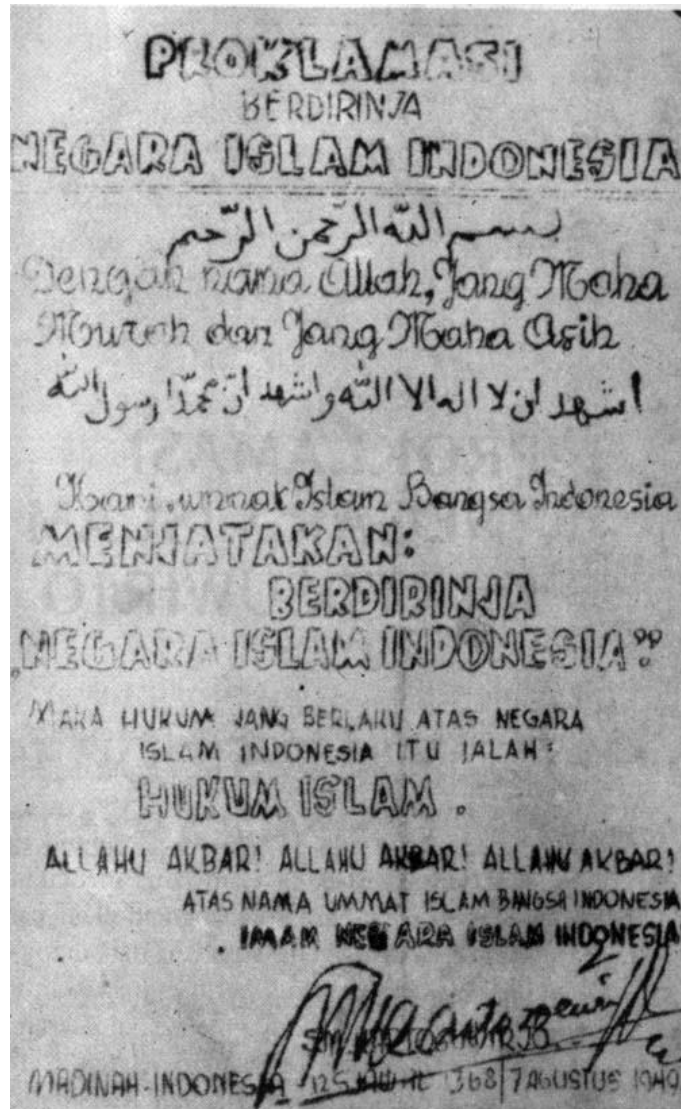 PROKLAMASI
BERDIRINJA
NEGARA ISLAM INDONESIA
بسم الله الرّحمن الرّحيم
Dengan nama Allah, Jang Maha
Murah dan Jang Maha Asih
اشهد ان لا اله الا الله واشهد انّ محمّدا رسول الله
Kami, ummat Islam Bangsa Indonesia
MENJATAKAN:
BERDIRINJA
„NEGARA ISLAM INDONESIA”
MAKA HUKUM JANG BERLAKU ATAS NEGARA
ISLAM INDONESIA ITU IALAH:
HUKUM ISLAM.
ALLAHU AKBAR! ALLAHU AKBAR! ALLAHU AKBAR!
ATAS NAMA UMMAT ISLAM BANGSA INDONESIA
IMAM NEGARA ISLAM INDONESIA
MADINAH-INDONESIA 12 1368/7 AGUSTUS 1949